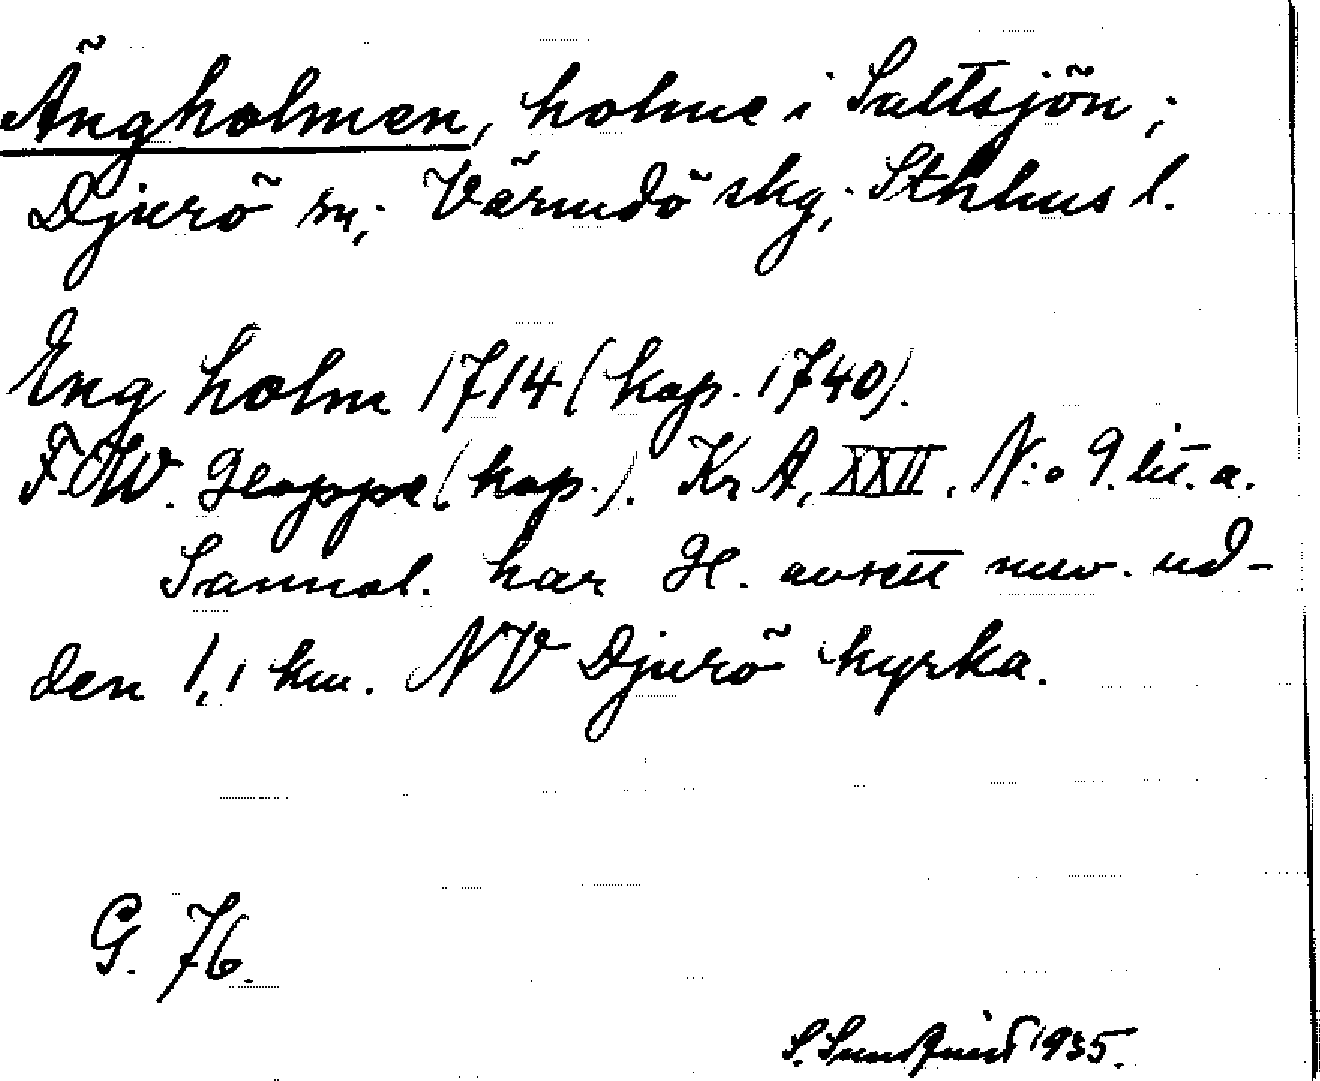 Ängholmen, holme i Saltsjön;
Djurö sn; Värmdö skg; Sthlms l.
Eng holm 1714 (kop. 1740).
F.W. Hoppe (kop.). Kr A, XXII. N:o 9. lit. a.
Sannol. har H. avsett nuv. ud-
den 1,1 km. NV Djurö kyrka.
G. 76.
S. 1935.